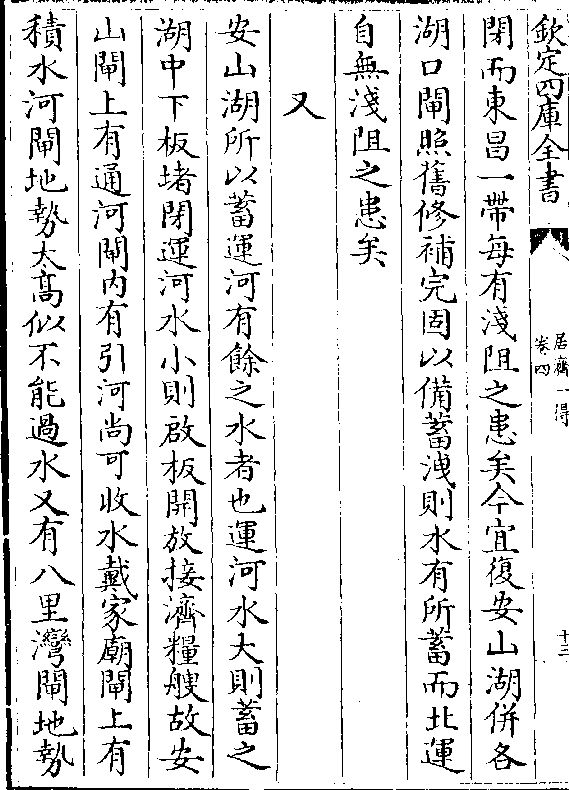 欽定四庫全書
居濟一得
卷四
十三
閉而東昌一帶每有淺阻之患矣今宜復安山湖併各
湖口閘照舊修補完固以備蓄洩則水有所蓄而北運
自無淺阻之患矣
又
安山湖所以蓄運河有餘之水者也運河水大則蓄之
湖中下板堵閉運河水小則啟板開放接濟糧艘故安
山閘上有通河閘内有引河尚可收水戴家廟閘上有
積水河閘地勢太高似不能過水又有八里灣閘地勢